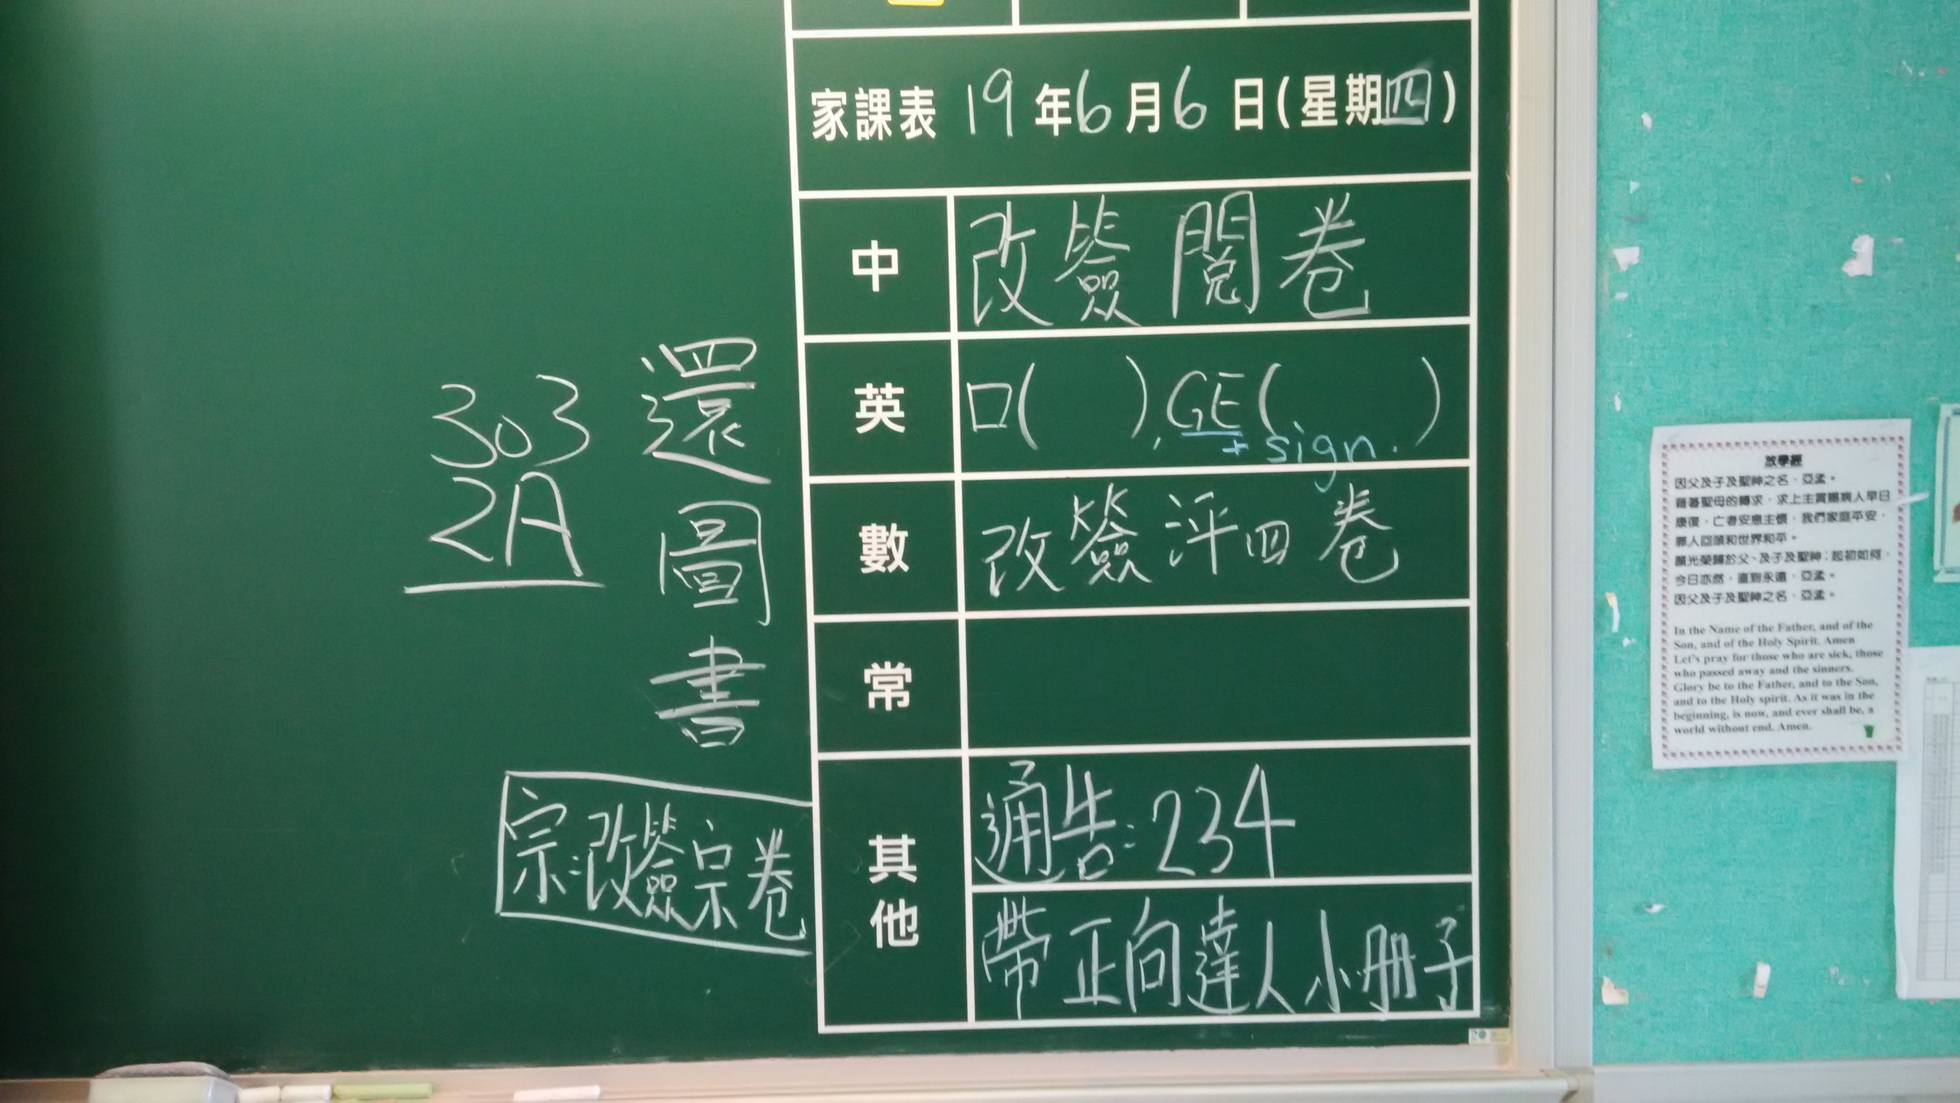 家課表 19年6月6日(星期四)
中 改簽閱卷
英 口( ), GE( )
+ sign.
數 改簽評四卷
常
其他 通告:234
帶正向達人小冊子
還圖書
303
2A
宗:改簽宗卷
放學經
因父及子及聖神之名,亞孟。
藉著聖母的轉求,求上主賞賜病人早日
康復,亡者安息主懷,我們家庭平安,
罪人回頭和世界和平。
願光榮歸於父、及子及聖神;起初如何,
今日亦然,直到永遠,亞孟。
因父及子及聖神之名,亞孟。
In the Name of the Father, and of the
Son, and of the Holy Spirit. Amen
Let's pray for those who are sick, those
who passed away and the sinners.
Glory be to the Father, and to the Son,
and to the Holy spirit. As it was in the
beginning, is now, and ever shall be, a
world without end. Amen.